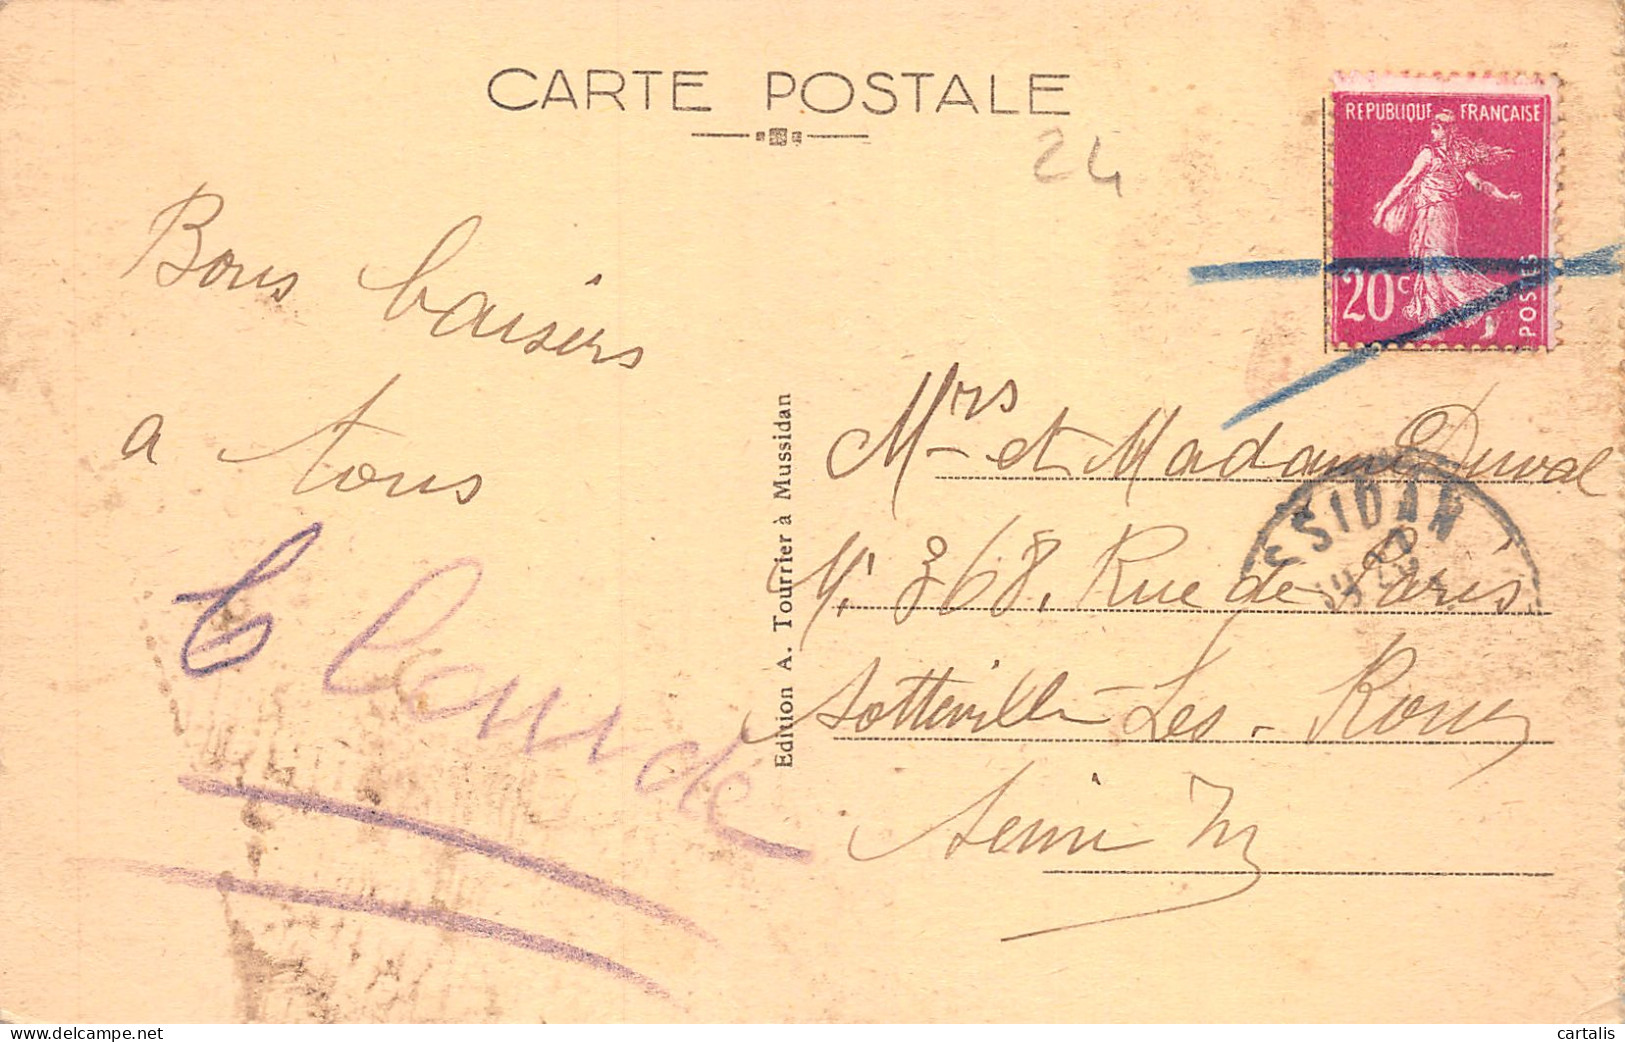 CARTE POSTALE
24
REPUBLIQUE FRANÇAISE
20c
POSTES
Bons baisers
a tous
Claude
Edition A. Tourrier à Mussidan
Mrs et Madame Duval
368, Rue de Paris
Sotteville-Les-Rouen
Seine
SSIDAN
www.delcampe.net
cartalis